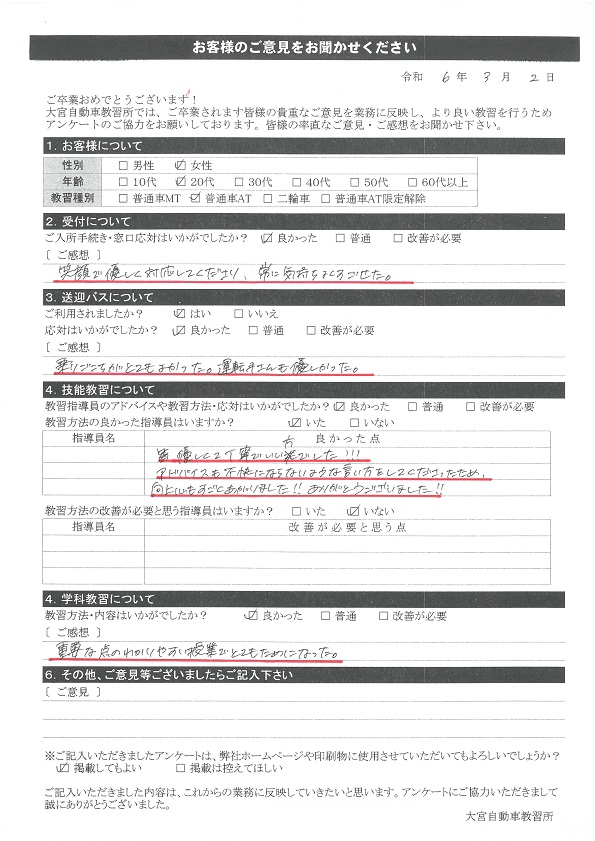 お客様のご意見をお聞かせください
令和 6 年 3 月 2 日
ご卒業おめでとうございます!
大宮自動車教習所では、ご卒業されます皆様の貴重なご意見を業務に反映し、より良い教習を行うため
アンケートのご協力をお願いしております。皆様の率直なご意見・ご感想をお聞かせ下さい。
1. お客様について
性別 □ 男性 ☑ 女性
年齢 □ 10代 ☑ 20代 □ 30代 □ 40代 □ 50代 □ 60代以上
教習種別 □ 普通車MT ☑ 普通車AT □ 二輪車 □ 普通車AT限定解除
2. 受付について
ご入所手続き・窓口応対はいかがでしたか? ☑ 良かった □ 普通 □ 改善が必要
[ ご感想 ]
笑顔で優しく対応してくださり、常に気持ちよくすごせた。
3. 送迎バスについて
ご利用されましたか? ☑ はい □ いいえ
応対はいかがでしたか? ☑ 良かった □ 普通 □ 改善が必要
[ ご感想 ]
乗りごこちがとてもよかった。運転手さんも優しかった。
4. 技能教習について
教習指導員のアドバイスや教習方法・応対はいかがでしたか? ☑ 良かった □ 普通 □ 改善が必要
教習方法の良かった指導員はいますか? ☑ いた □ いない
指導員名 良かった点
皆優しくて丁寧でいい方達でした!!!
アドバイスも不快にならないような言い方をしてくださったため、
向上心もすごくあがりました!! ありがとうございました!!
教習方法の改善が必要と思う指導員はいますか? □ いた ☑ いない
指導員名 改善が必要と思う点
4. 学科教習について
教習方法・内容はいかがでしたか? ☑ 良かった □ 普通 □ 改善が必要
[ ご感想 ]
重要な点のわかりやすい授業でとてもためになった。
6. その他、ご意見等ございましたらご記入下さい
[ ご意見 ]
※ご記入いただきましたアンケートは、弊社ホームページや印刷物に使用させていただいてもよろしいでしょうか?
☑ 掲載してもよい □ 掲載は控えてほしい
ご記入いただきました内容は、これからの業務に反映していきたいと思います。アンケートにご協力いただきまして
誠にありがとうございました。
大宮自動車教習所